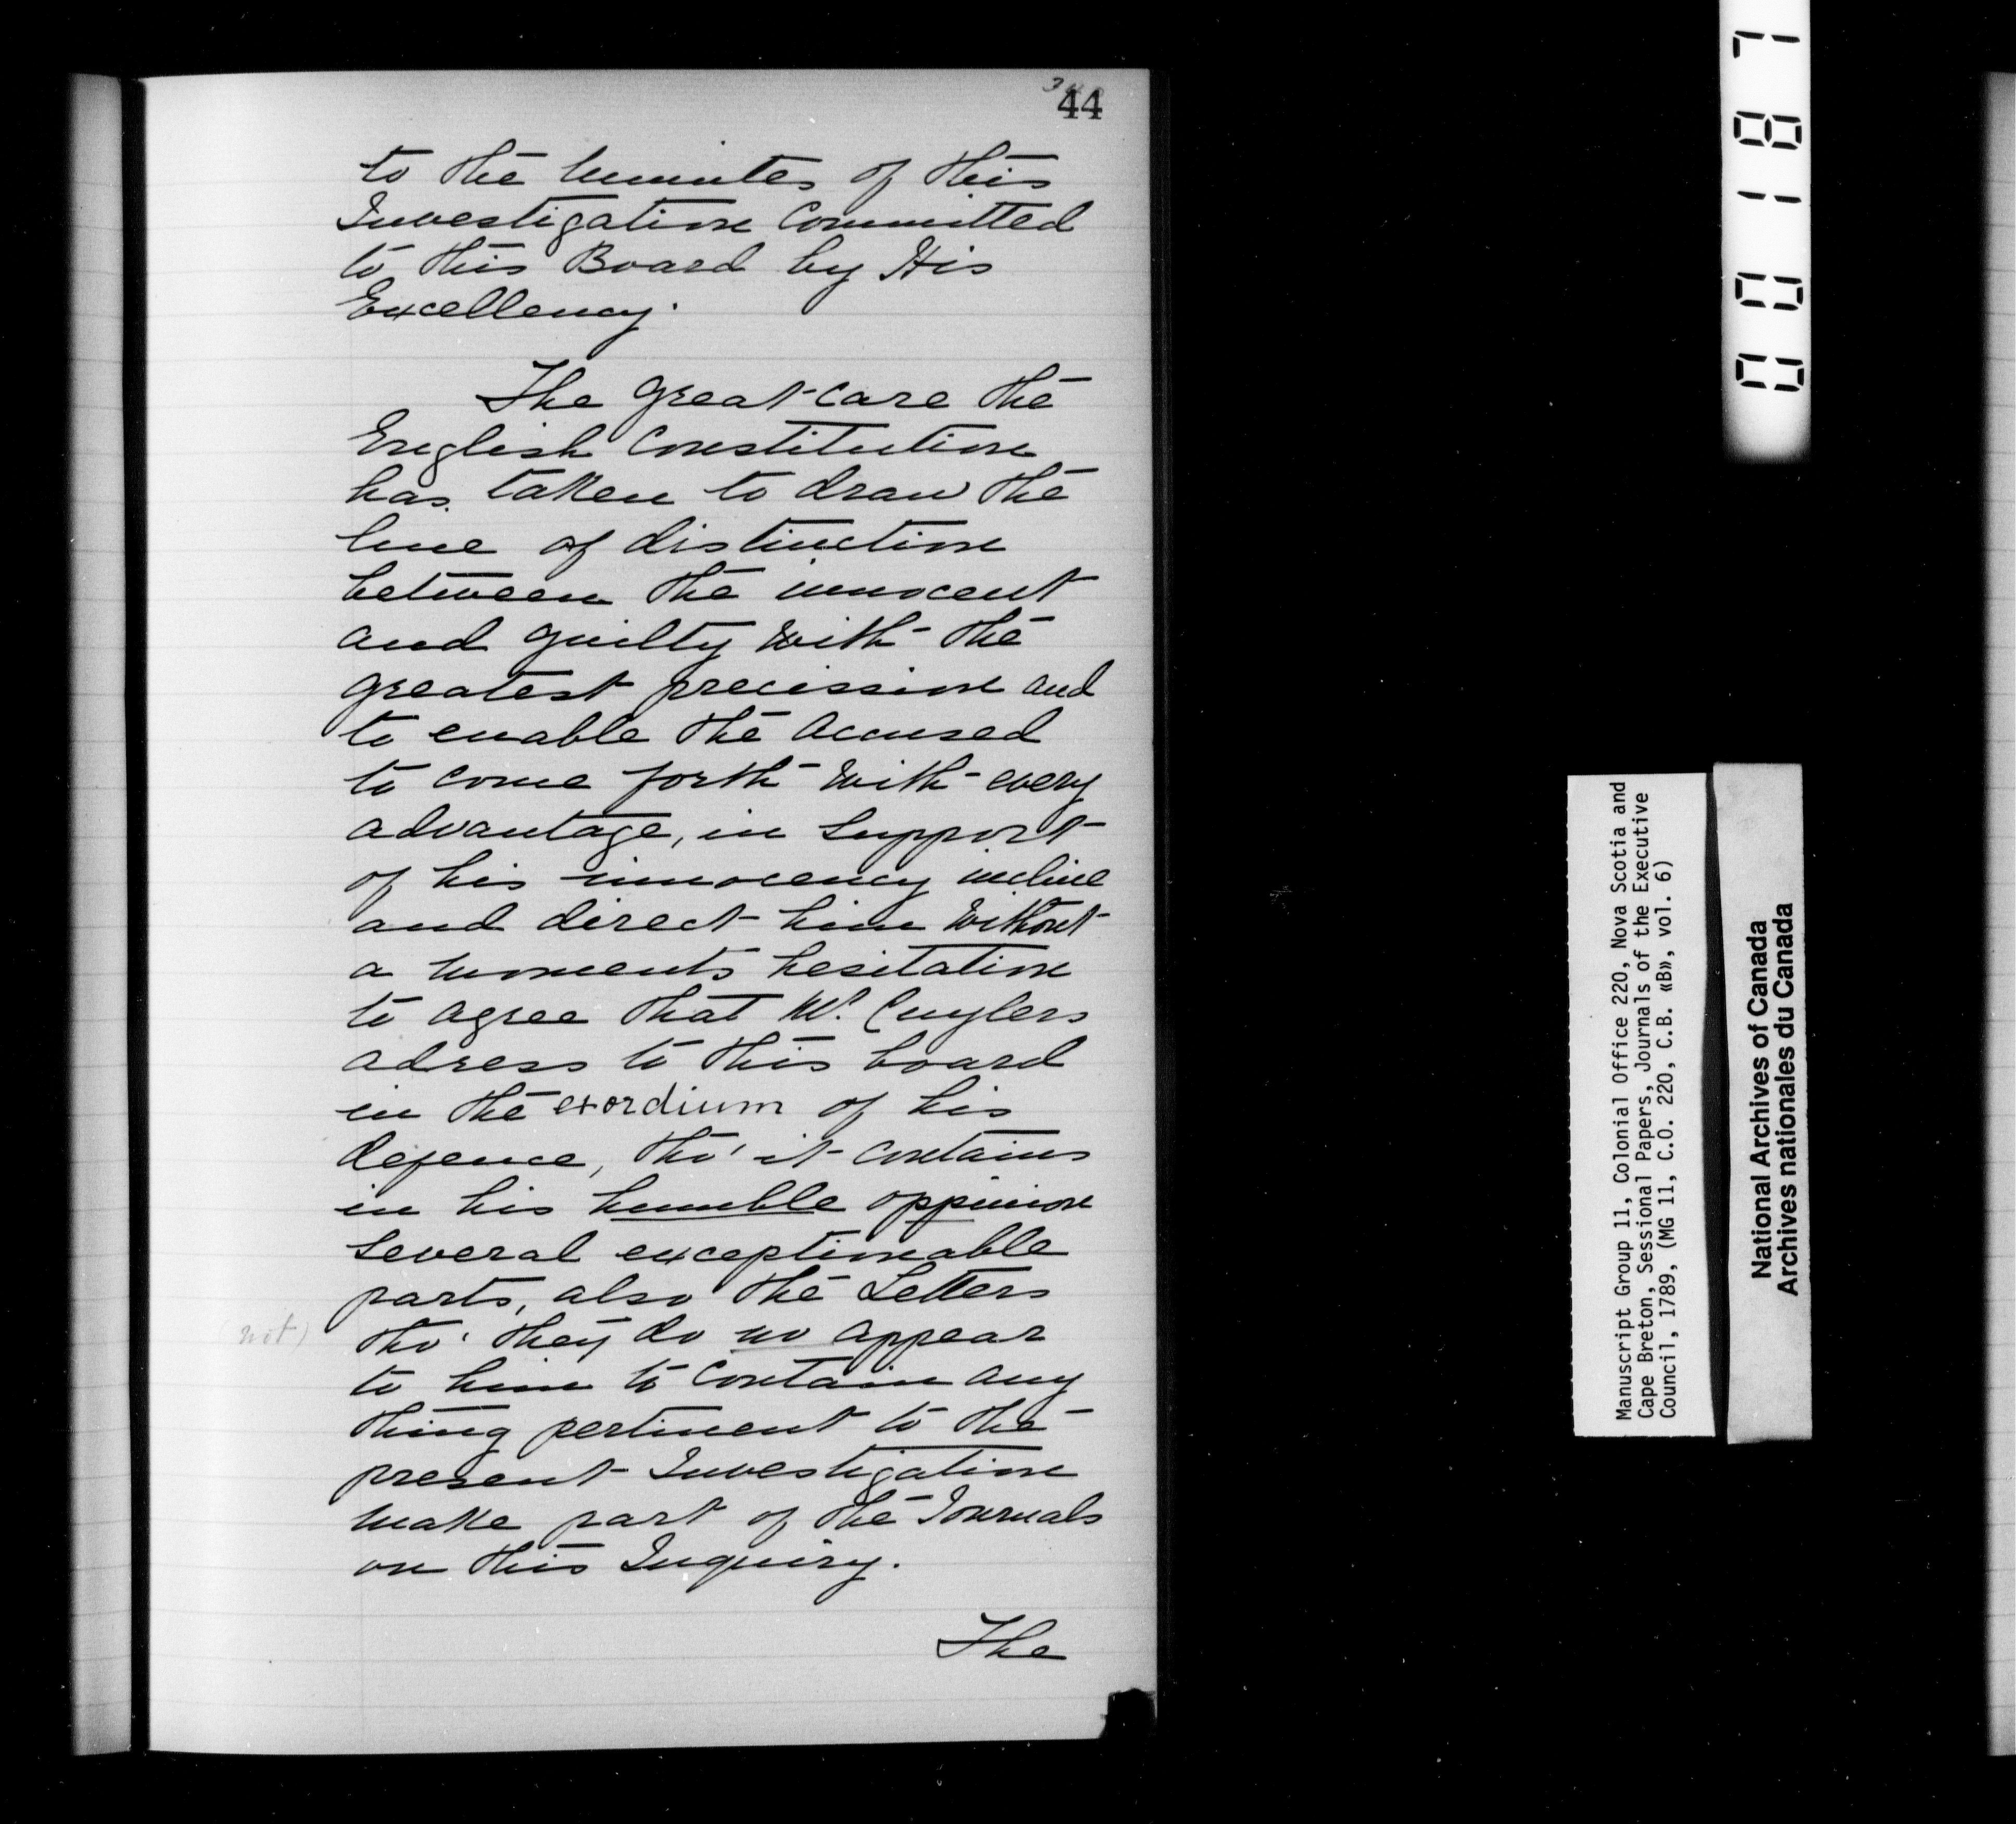 44
to the minutes of this
Investigation Committed
to this Board by His
Excellency.
The great care the
English Constitution
has taken to draw the
line of distinction
between the innocent
and guilty with the
greatest precission and
to enable the accused
to come forth with every
advantage, in support
of his innocency incline
and direct him without
a moments hesitation
to agree that Mr. Cuylers
adress to this board
in the exordium of his
defence, tho' it contains
in his humble oppinion
several exceptionable
parts, also the Letters
(not)
tho' they do no appear
to him to contain any
thing pertinent to the
present Investigation
make part of the Journals
on this Inquiry.
The
00187
Manuscript Group 11, Colonial Office 220, Nova Scotia and
Cape Breton, Sessional Papers, Journals of the Executive
Council, 1789, (MG 11, C.O. 220, C.B. «B», vol. 6)
National Archives of Canada
Archives nationales du Canada